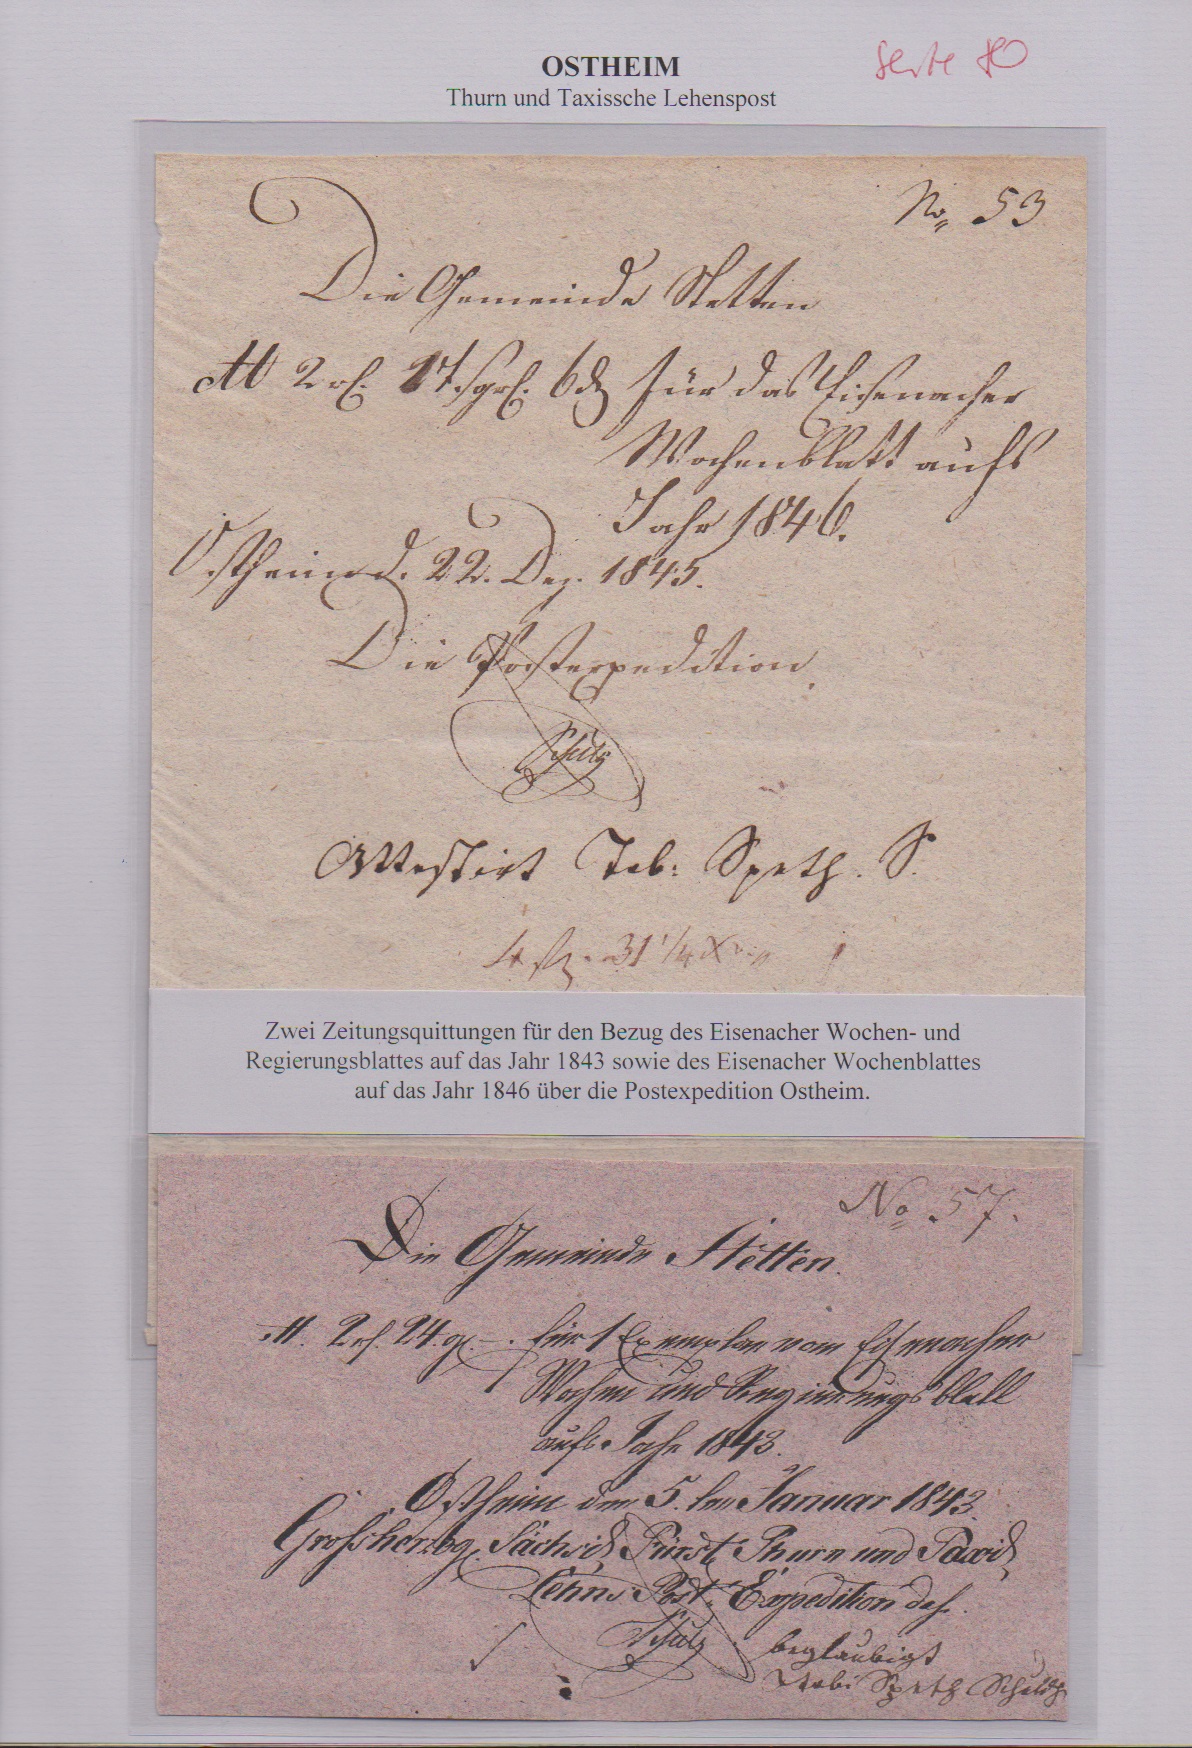 OSTHEIM
Seite 80
Thurn und Taxissche Lehenspost
No 53
Die Gemeinde Stetten
2 rf. 17 sgrf. 6 d für das Eisenacher
Wochenblatt aufs
Jahr 1846.
Ostheim d. 22. Dez. 1845.
Die Postexpedition
Schulz
Attestirt Tob: Speth. S.
31 1/4 X
Zwei Zeitungsquittungen für den Bezug des Eisenacher Wochen- und
Regierungsblattes auf das Jahr 1843 sowie des Eisenacher Wochenblattes
auf das Jahr 1846 über die Postexpedition Ostheim.
No 57.
Die Gemeinde Stetten.
2 rf. 24 gr. –. für 1 Exemplar vom Eisenacher
Wochen und Regierungsblatt
aufs Jahr 1843.
Ostheim den 5. ten Januar 1843.
Grossherzogl. Sächsisch Fürstl. Thurn und Taxisch
Lehns Post Expedition das.
Schulz
beglaubigt
Tobi Speth Schulth